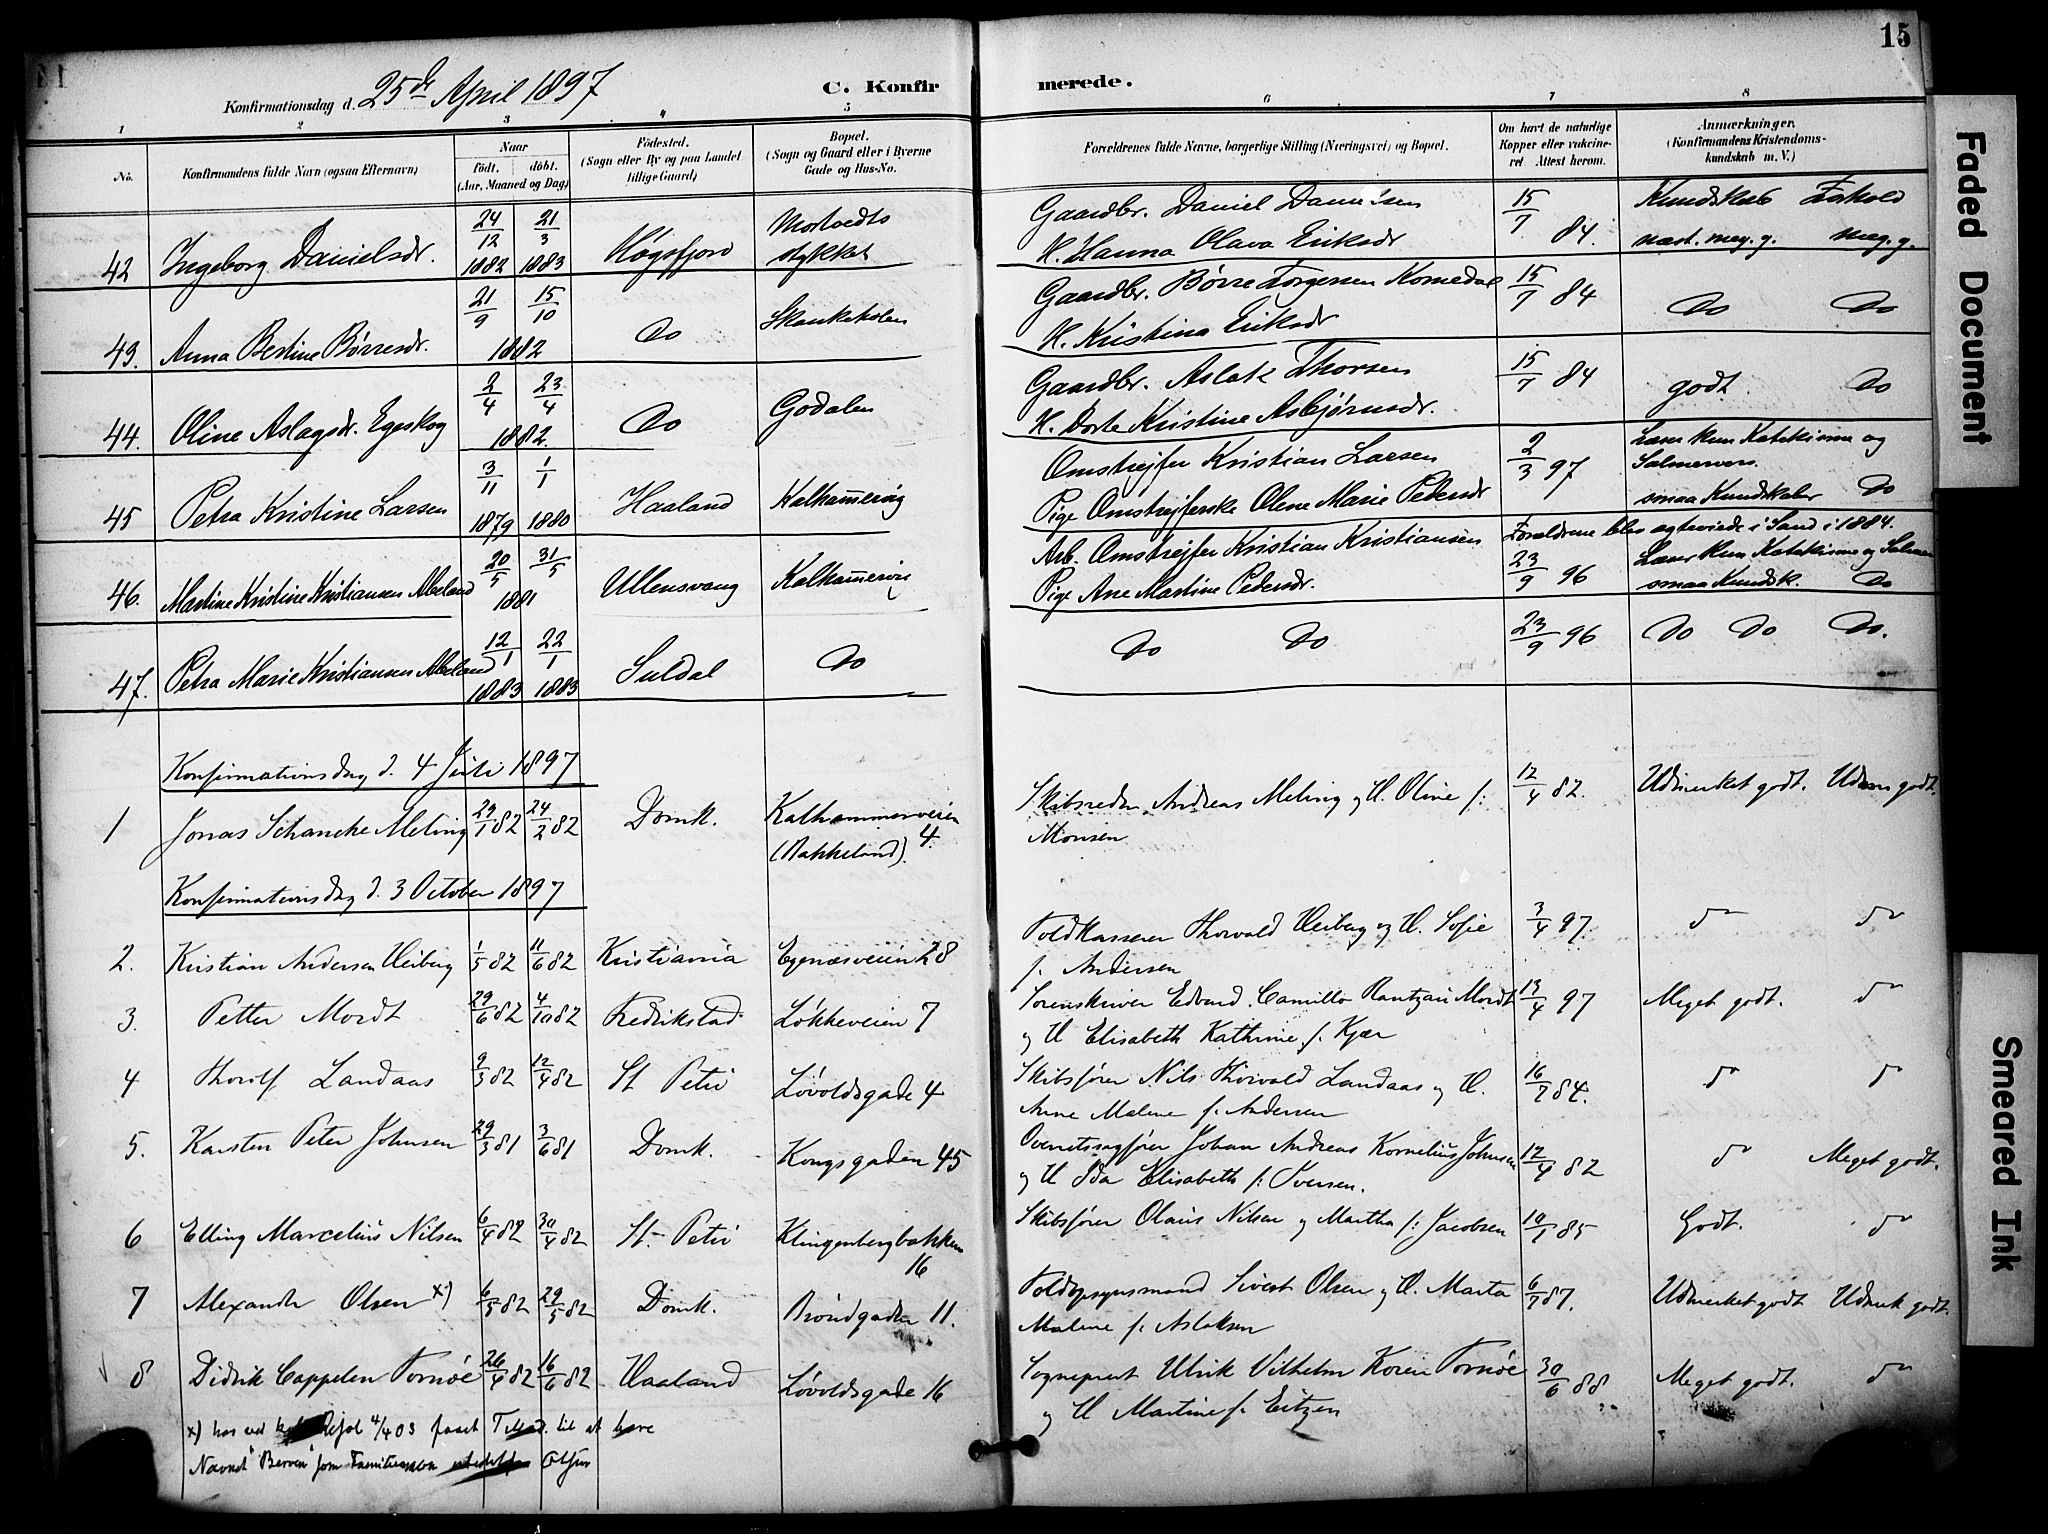 15
Konfirmationsdag d. 25de April 1897 C. Konfirmerede.
1 2 3 4 5 6 7 8
No. Konfirmandens fulde Navn (ogsaa Efternavn) Naar født. døbt. (Aar, Maaned og Dag) Fødested. (Sogn eller By og paa Landet tillige Gaard) Bopæl. (Sogn og Gaard eller i Byerne Gade og Hus-No. Forældrenes fulde Navne, borgerlige Stilling (Næringsvei) og Bopæl. Om havt de naturlige Kopper eller vaccineret. Attest herom. Anmærkninger. (Konfirmandens Kristendomskundskab m. V.)
Kundskab Forhold
42 Ingeborg Danielsdr. 24/12 1882 21/3 1883 Høgsfjord Mortvedtsstykket Gaardbr. Daniel Danielsen 15/7 84. næst. meg. g. meg. g.
H. Hanna Olava Eriksdr
43. Anna Bertine Børresdr. 21/9 15/10 1882 Do Skankeholen Gaardbr. Børre Torgersen Komedal 15/7 84 Do Do
H. Kristina Eriksdr
44. Oline Aslagsdr. Egeskog 2/4 23/4 1882. Do Godalen Gaardbr. Aslak Thorsen 15/7 84 godt. Do
H. Dorte Kristine Asbjørnsdr.
45 Petra Kristine Larsen 3/11 1879 1/1 1880 Haaland Kalhammervig Omstrejfer Kristian Larsen 2/3 97 Læser kun Katekisme og Salmevers.
Pige Omstrejferske Olene Marie Pedersdr smaa Kundskaber Do
46. Martine Kristine Kristiansen Abeland 20/5 31/5 1881 Ullensvang Kalhammervig Arb. Omstrejfer Kristian Kristiansen Forældrene blev egteviede i Sand i 1884.
Pige Ane Martine Pedersdr. 23/9 96 Læser kun Katekisme og Salmer
smaa Kundsk. Do
47. Petra Marie Kristiansen Abeland 12/1 1883 22/1 1883 Suldal Do Do Do 23/9 96 Do Do Do.
Konfirmationsdag d. 4 Juli 1897
1 Jonas Schancke Meling 29/1 82 24/2 82 Domk. Kalhammerveien 4. (Bakkeland). Skibsreder Andreas Meling og H. Oline f: 12/4 82. Udmerket godt. Udm godt.
Monsen
Konfirmationsdag d. 3 October 1897
2. Kristian Andersen Heiberg 1/5 82 11/6 82 Kristiania Egenæsveien 28 Toldkasserer Thorvald Heiberg og H. Sofie 3/4 97. do do
f. Andersen
3. Petter Mordt 29/6 82 4/10 82 Fredrikstad Løkkeveien 7 Sorenskriver Edvard Camillo Rantzau Mordt 13/4 97 Meget godt. do
og H Elisabeth Kathrine f. Kjær
4 Thorolf Landaas 9/3 82 12/4 82 St Petri Løvoldsgade 4 Skibsfører Nils Thorvald Landaas og H. 16/7 84. do do
Anne Malene f. Andersen
5. Karsten Peter Johnsen 29/3 81 3/6 81 Domk. Kongsgaden 45 Overretssagfører Johan Andreas Kornelius Johnsen 12/4 82 do Meget godt.
og H Ida Elisabeth f: Iversen.
6 Elling Marcelius Nilsen 6/4 82 30/4 82 St. Petri Klingenbergbakken 16 Skibsfører Olaus Nilsen og Martha f: Jacobsen 10/1 85 Godt. do
7 Alexander Olsen x) 6/5 82 29/5 82 Domk. Brøndgaden 11. Toldopsynsmand Sivert Olsen og H. Marta 6/7 87. Udmerket godt Udmerk godt.
Malene f. Aslaksen
8 Didrik Cappelen Tornøe 26/4 82 16/6 82 Haaland Løvoldsgade 16 Sogneprest Ulrik Vilhelm Koren Tornøe 30/6 88 Meget godt. do
og H Martine f. Eitzen
x) har ved kgl. Resol 4/4 03 faaet Tillad. til at bære
Navnet "Berven" som Familienavn
Faded Document
Smeared Ink